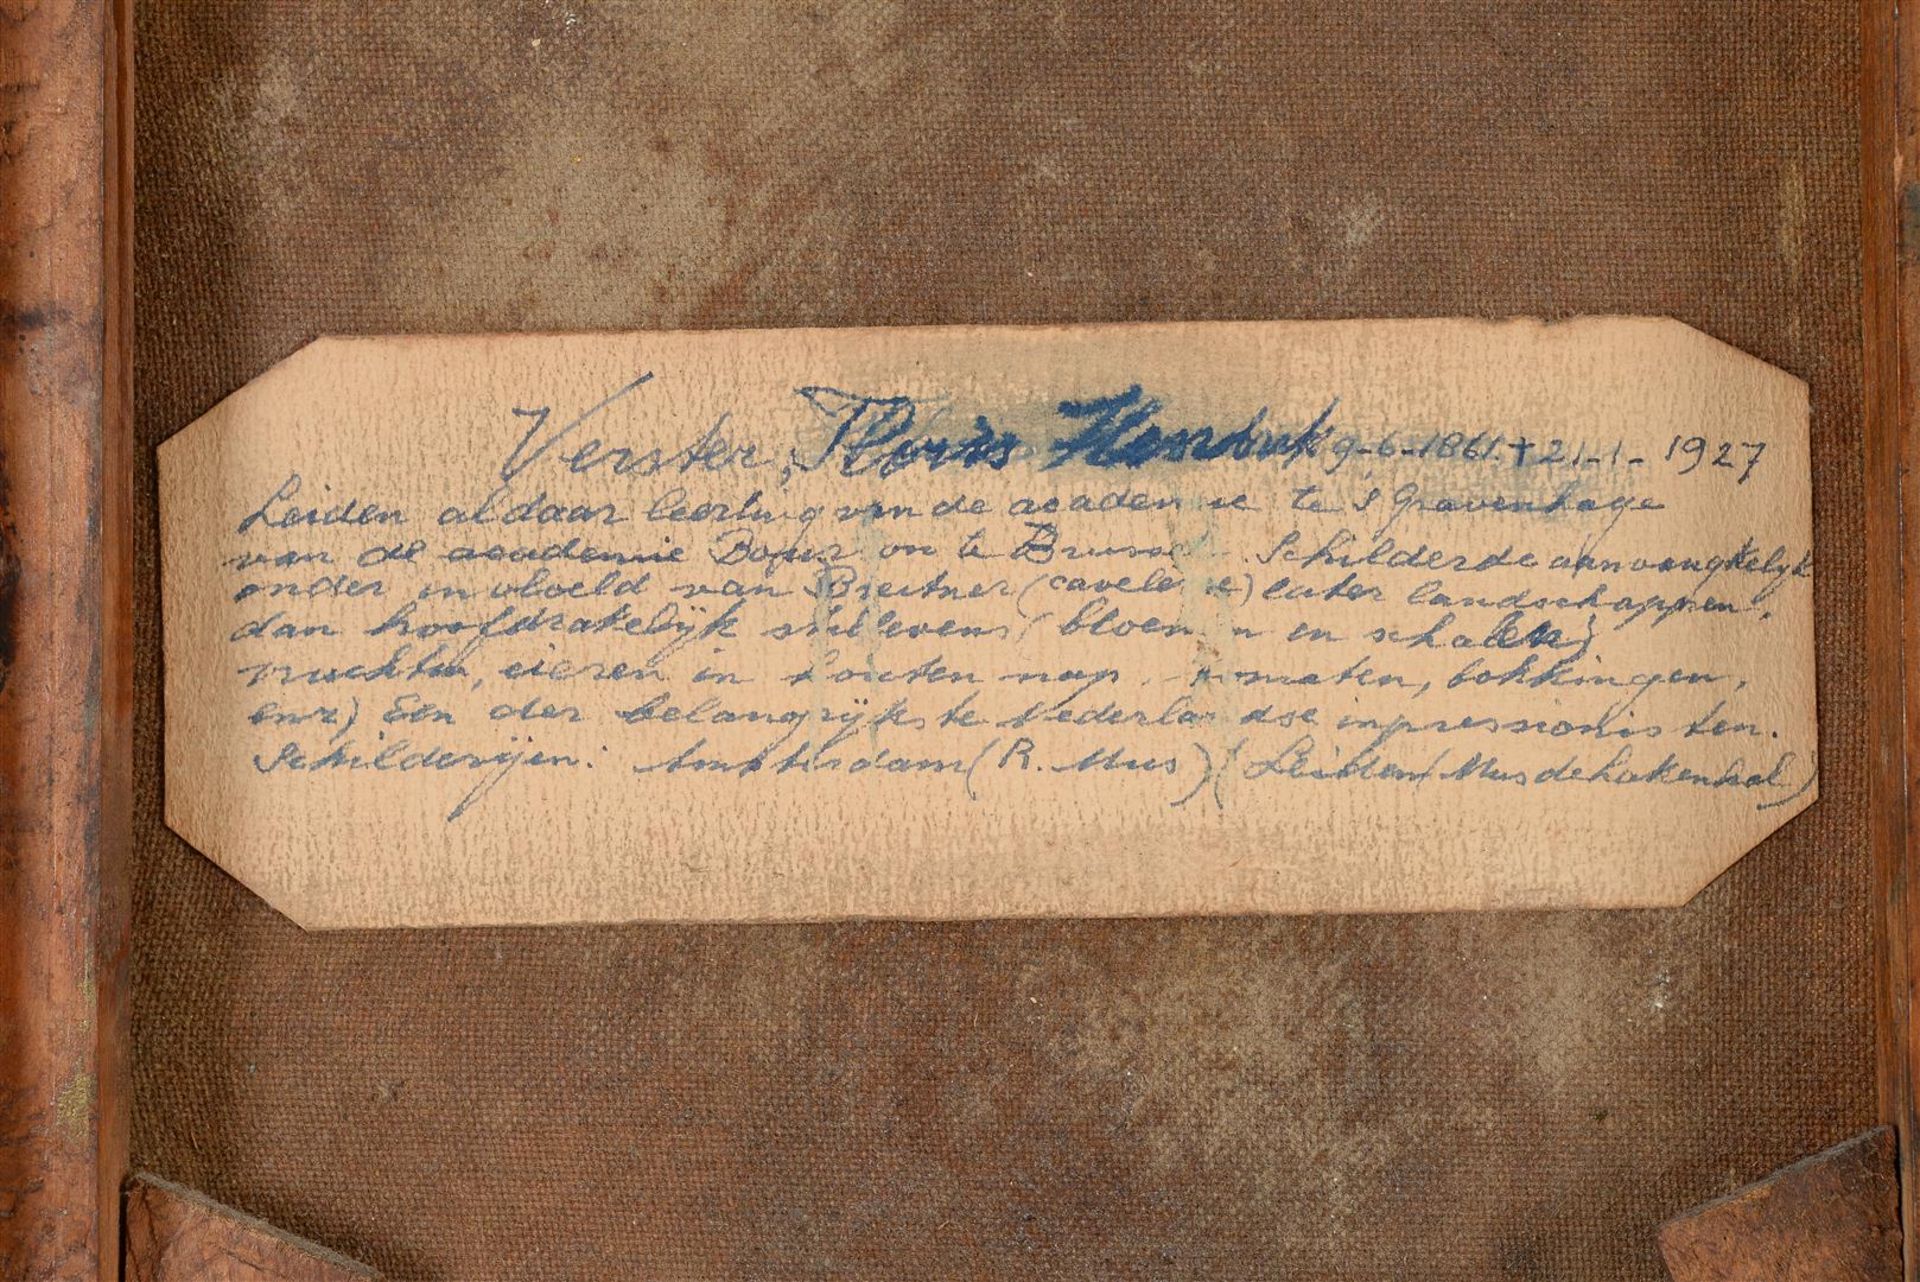 Verster, Floris Hendrik 9-6-1861 + 21-1-1927
Leiden aldaar leerling van de academie te 's Gravenhage
van de academie en te Brussel. Schilderde aanvangkelijk
onder invloeld van Breitner (cavelerie) later landschappen,
dan hoofdzakelijk stillevens (bloemen in schalen,
vruchten, eieren in houten nap, tomaten, bokkingen,
enz) Een der belangrijkste Nederlandse impressionisten.
Schilderijen: Amsterdam (R. Mus) (Leiden (Mus de Lakenhal)